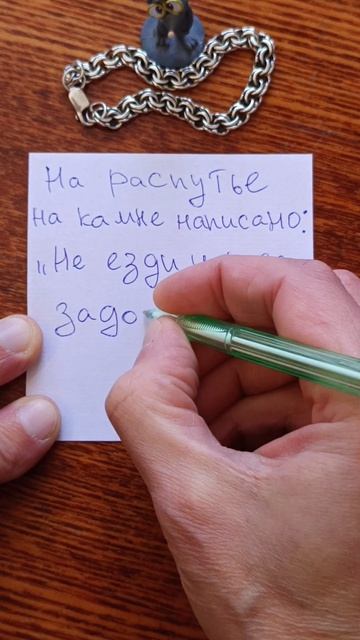 На распутье
на камне написано:
„Не езди
задо